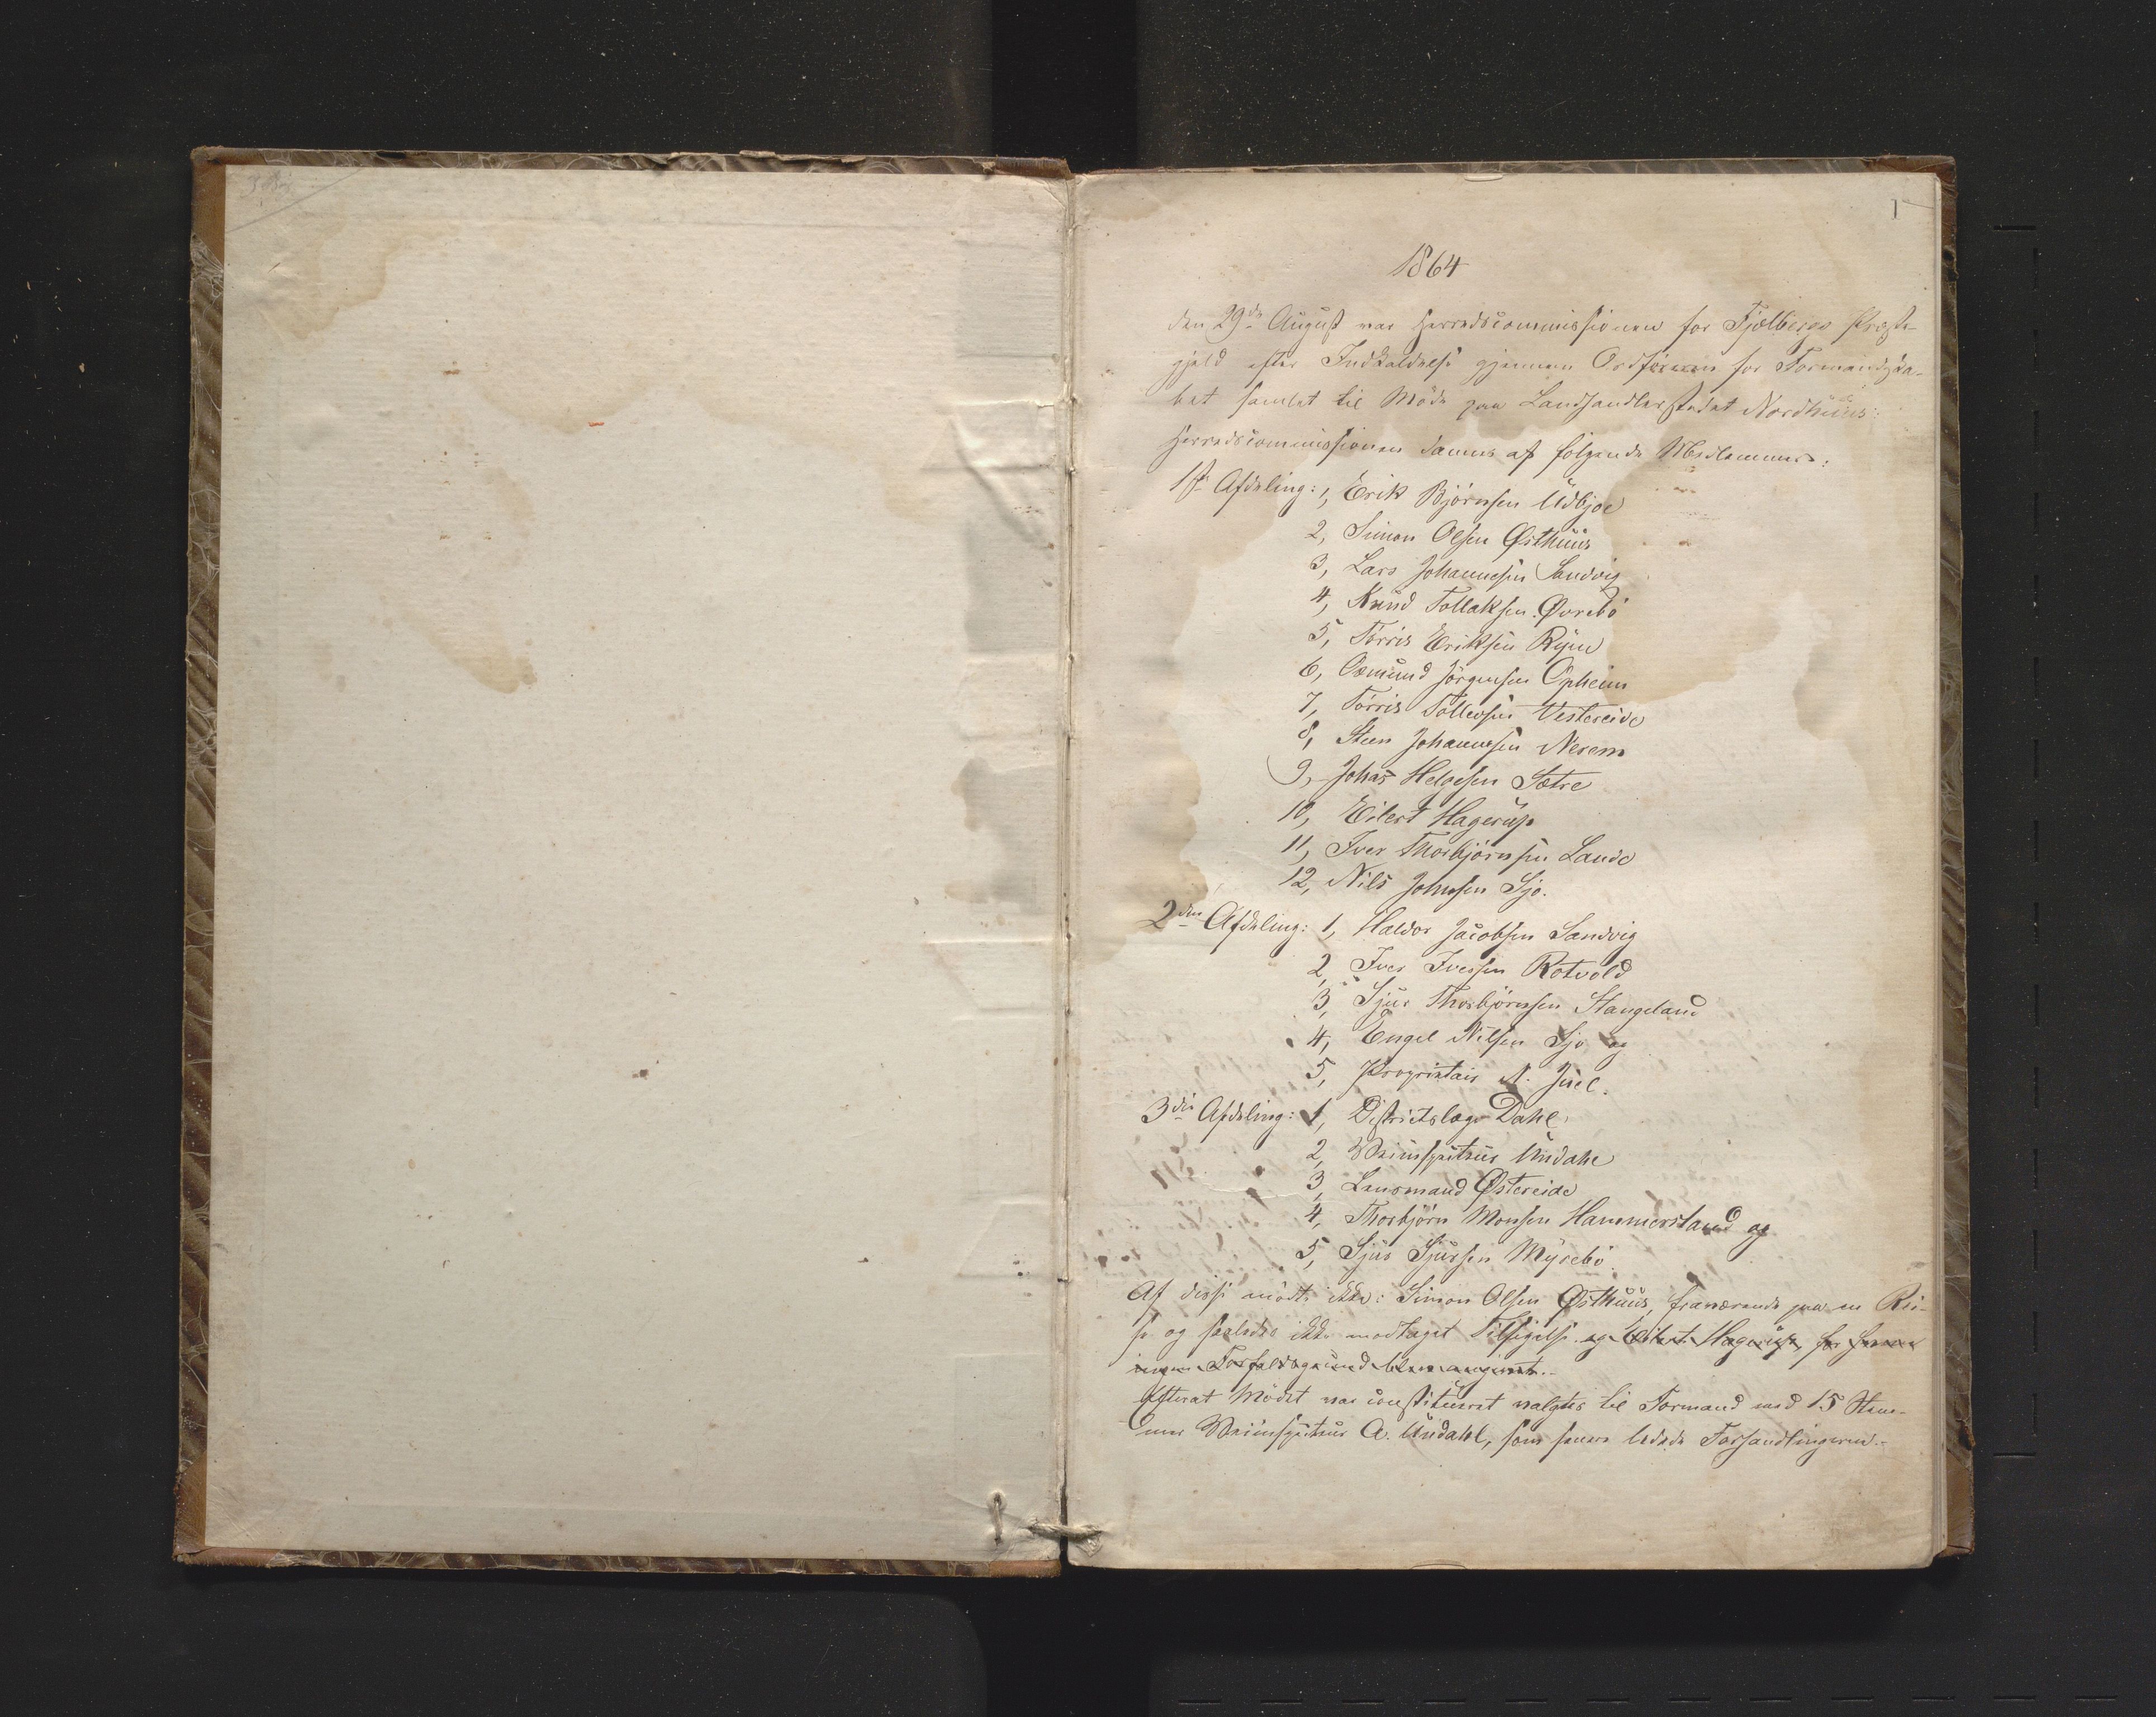 1
1864
Den 29de August var Herredscommissionen for Fjelbergs Præste-
gjeld efter Indkaldelse gjennem Ordføreren for Formandska-
bet samlet til Møde paa Landhandlerstedet Nordhuus:
Herredscommissionen dannes af følgende Medlemmer:
1ste Afdeling: 1, Erik Bjørnsen Udbjoe
2, Simon Olsen Østhuus
3, Lars Johannesen Sandvig
4, Knud Tollaksen Øvrebø
5, Tørris Eriksen Ryen
6, Asmund Jørgensen Opheim
7, Tørris Tollevsen Vestereide
8, Steen Johannesen Nerem
9, Johas Helgesen Sætre
10, Eilert Hagerup
11, Iver Thorbjørnsen Lande
12, Nils Johnsen Sjo.
2den Afdeling: 1, Haldor Jacobsen Sandvig
2, Iver Iversen Rotvold
3, Sjur Thorbjørnsen Stangeland
4, Engel Nilsen Sjo og
5, Proprietair N. Juel.
3die Afdeling: 1, Districtslæge Dahl
2, Veiinspecteur Undahl
3, Lensmand Østereide
4, Thorbjørn Monsen Hammersland og
5, Sjur Sjursen Myrebø.
Af disse mødte ikke: Simon Olsen Østhuus, fraværende paa en Rei-
se og saaledes ikke modtaget Tilsigelse og Eilert Hagerup, for hvem
ingen Forfaldsgrund blev angivet.
Efterat Mødet var constitueret valgtes til Formand med 15 Stem-
mer Veiinspecteur A. Undahl, som senere ledede Forhandlingerne.-